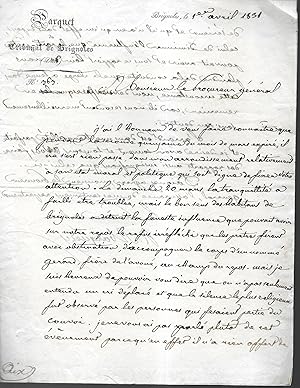 Parquet
du
Tribunal de Brignoles
Brignoles, le 1er avril 1831
N° 365
Monsieur le procureur général
J'ai l'honneur de vous faire connaître que
pendant la seconde quinzaine du mois de mars expiré, il
ne s'est rien passé dans mon arrondissement relativement
à son état moral et politique qui soit digne de fixer votre
attention. Le dimanche 20 mars, la tranquillité a
failli être troublée, mais le bon sens des habitans de
brignoles a détruit la funeste influence que pouvait avoir
sur notre repos le refus irréfléchi que les prêtres firent
avec obstination d'accompagner le corps d'un nommé
gerard, frère de l'avoué, au champ du repos. mais je
suis heureux de pouvoir vous dire que on n'a pas même
entendu un cri déplacé et que le silence le plus religieux
fut observé par les personnes qui faisaient partie du
convoi. je ne vous ai pas parlé plutôt de cet
événement parce qu'en effet il n'a rien offert de
Dix